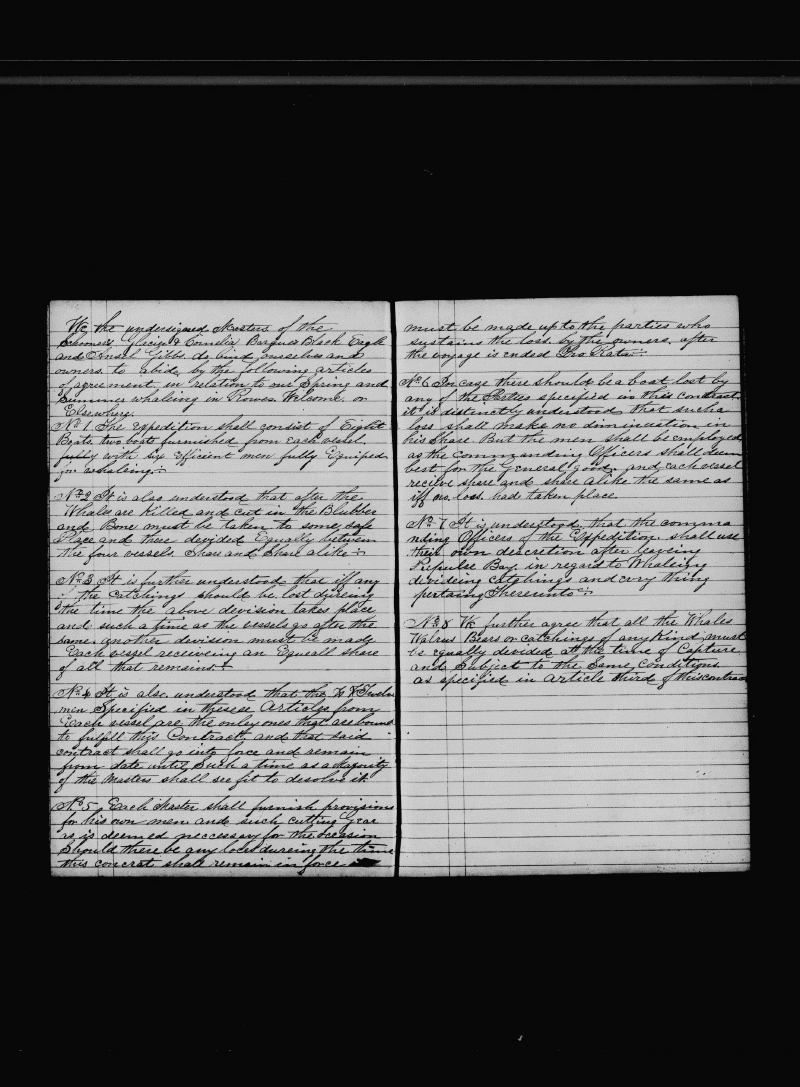 We the undersigned Masters of the
Schooners Glacier & Cornelia Barques Black Eagle
and Ansel Gibbs do bind ourselves and
owners to abide by the following articles
of agreement in relation to our Spring and
Summer whaleing in Rowes Welcome or
Elsewhere.
No 1 The expedition shall consist of Eight
Boats two boats furnished from each vessel
with Six Efficient men fully Equiped
for whaleing
No 2 It is also understood that after the
Whals are Killed and cut in the Blubber
and Bone must be taken to some safe
Place and there devided Equally between
the four vessels Share and Share alike
No 3 It is further understood that iff any
of the Catchings should be lost dureing
the time the above devision takes place
and such a time as the vessels go after the
same another devision must be made
Each vessel receiveing an Equeall share
of all that remains.
No 4 It is also understood that the
men Specified in these Articles from
Each vessel are the only ones that are bound
to fulfill this Contract and that said
contract shall go into force and remain
from date until Such a time as a Majority
of the Masters shall see fit to desolve it
No 5 Each Master shall furnish provisions
for his own men and such cutting gear
as is deemed neccessary for the occasion
Should there be any loss dureing the time
this concract shall remain in force
must be made up to the parties who
sustains the loss by the owners, after
the voyage is ended Pro Rata
No 6 In case there should be a boat lost by
any of the Parties specified in this contract
it is distenctly understood that such a
loss shall make no diminuation in
his Share But the men shall be employed
as the commanding Officers shall deem
best for the General good and each vessel
recieve share and share alike the same as
iff no loss had taken place.
No 7 It is understood that the comma
nding Officers of the Expedition shall use
their own descretion after leaveing
Repulse Bay in regard to Whaleing
devideing catchings and evry thing
pertaing Thereunto
No 8 We further agree that all the Whales
Walrus Bears or catchings of any Kind must
be equally devided at the time of Capture
and Subject to the Same Conditions
as specified in article third of this contract